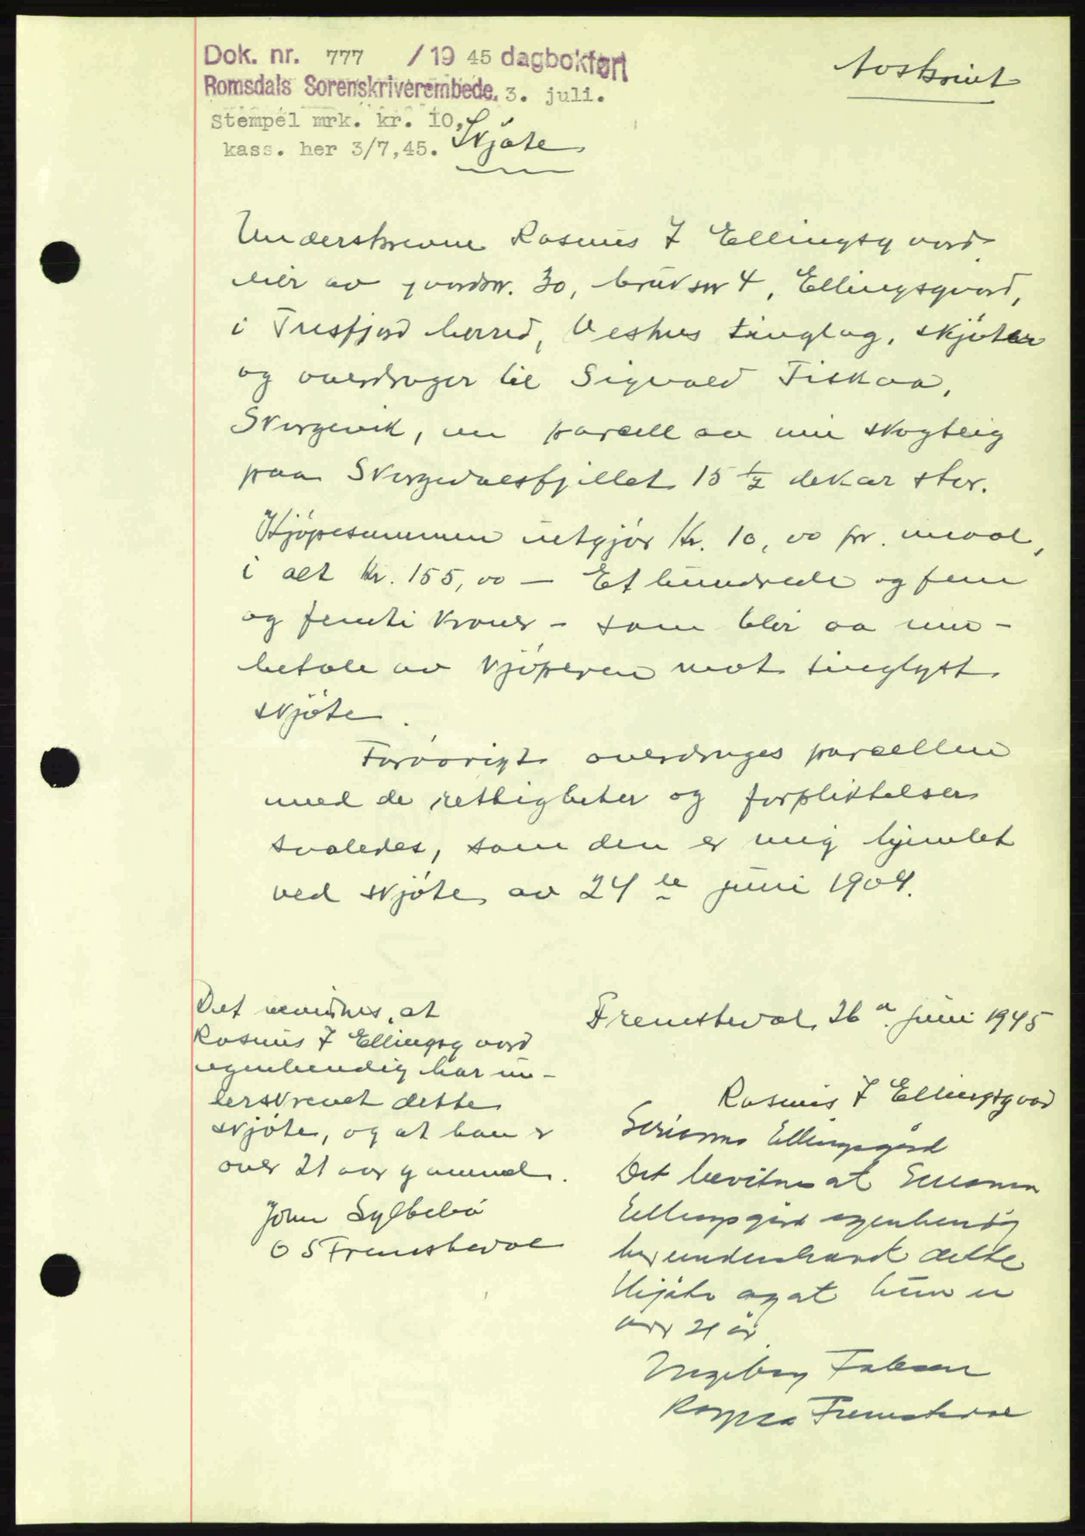 Dok. nr. 777 / 19 45 dagbokført
Romsdals Sorenskriverembede. 3. juli.
stempel mrk. kr. 10,
kass. her 3/7,45.
Avskrivt
Skjøte
Underskrevne Rasmus J Ellingsgaard
eier av gaardsnr. 30, bruksnr 4, Ellingsgaard,
i Tresfjord herred, Vestnes tinglag, skjøter
og overdrager til Sigvald Fiskaa,
Skorgevik, en parcell av min skogteig
paa Skorgedalsfjellet 15 ½ dekar stor.
Kjøpesummen utgjør Kr. 10,00 pr. maal,
i alt Kr. 155,00 — Et hundrede og fem
og femti kroner – som blir aa inn-
betale av kjøperen mot tinglyst
skjøte.
Forøvrigt overdrages parcellen
med de rettigheter og forpliktelser
saaledes, som den er mig hjemlet
ved skjøte av 24de juni 1904.
Det vitnes, at
Rasmus J Ellingsgaard
egenhendig har un-
derskrevet dette
skjøte, og at han er
over 21 aar gammel.
John Sylbebø
O S Fremstedal
Fremstedal 26 juni 1945
Rasmus J Ellingsgaard
Ellingsgård
Det bevitnes at
Ellingsgård egenhendig
har underskrevet dette
skjøte og at hun er
over 21 år
Ingeborg
Fremstedal